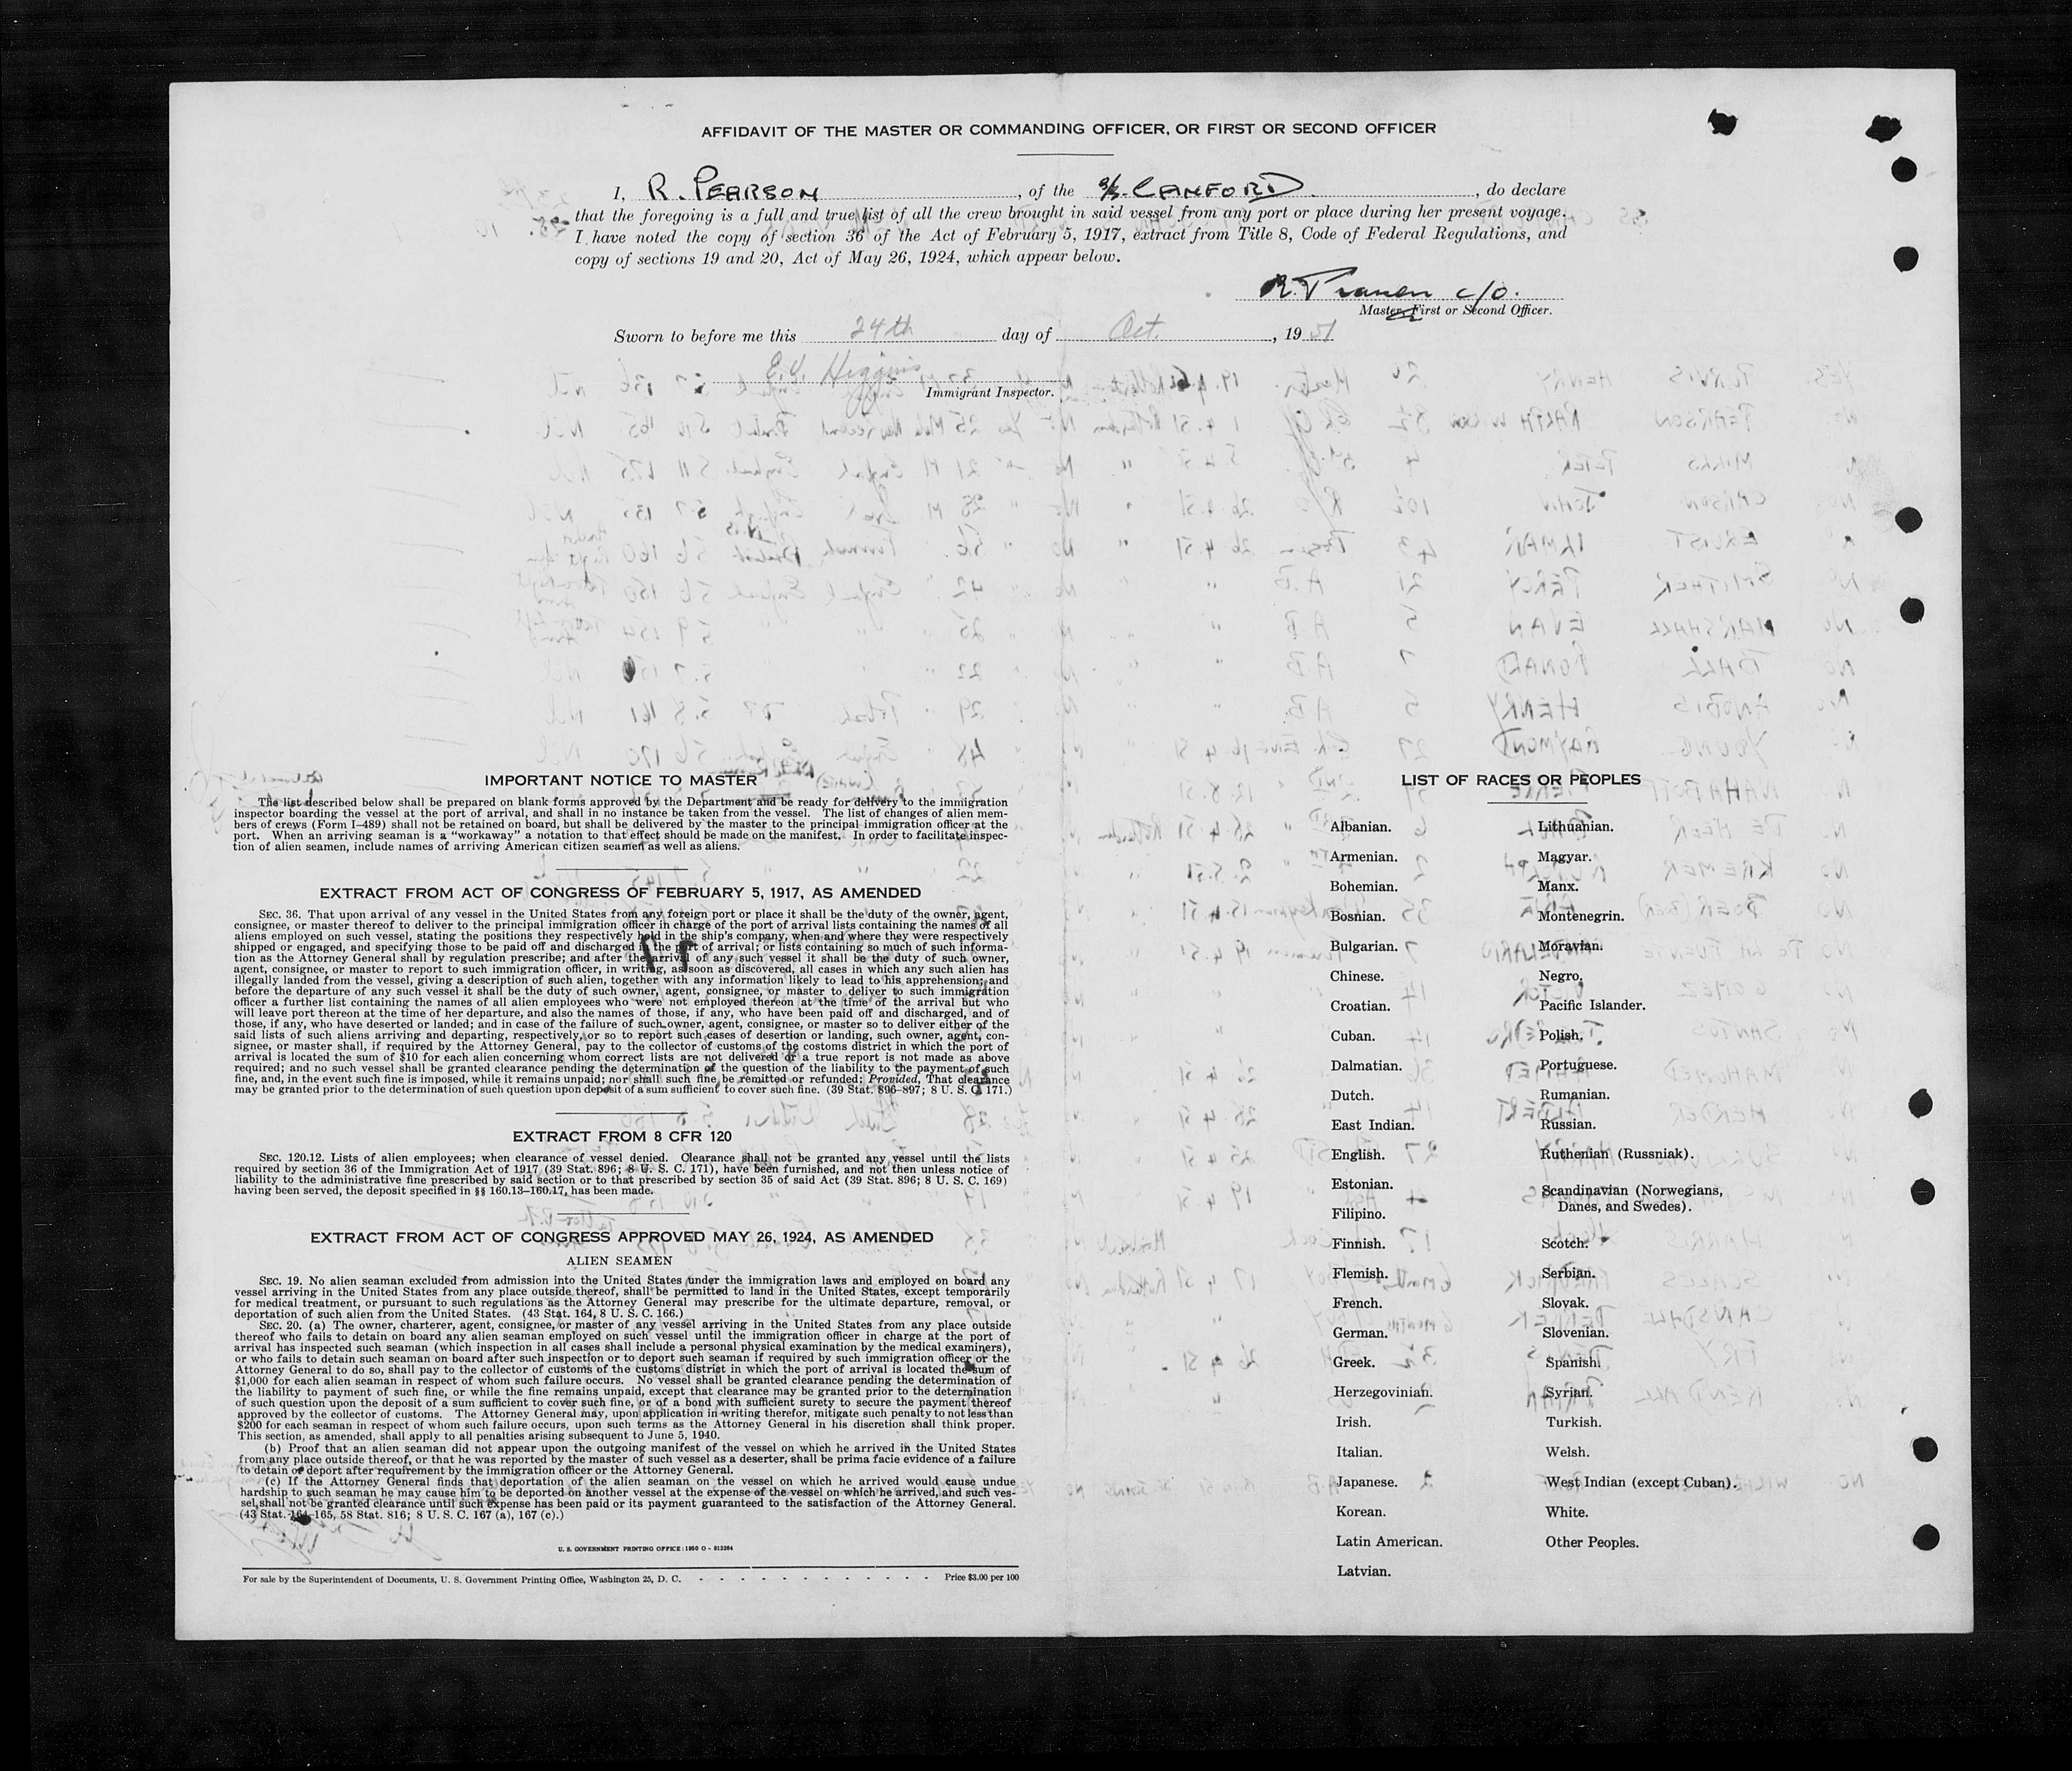 AFFIDAVIT OF THE MASTER OR COMMANDING OFFICER, OR FIRST OR SECOND OFFICER
I, R. PEARSON, of the S/S. CANFORD, do declare
that the foregoing is a full and true list of all the crew brought in said vessel from any port or place during her present voyage.
I have noted the copy of section 36 of the Act of February 5, 1917, extract from Title 8, Code of Federal Regulations, and
copy of sections 19 and 20, Act of May 26, 1924, which appear below.
c/o.
Master, First or Second Officer.
Sworn to before me this 24th day of Oct., 19 51
Higgins
Immigrant Inspector.
IMPORTANT NOTICE TO MASTER
The list described below shall be prepared on blank forms approved by the Department and be ready for delivery to the immigration
inspector boarding the vessel at the port of arrival, and shall in no instance be taken from the vessel. The list of changes of alien mem-
bers of crews (Form I-489) shall not be retained on board, but shall be delivered by the master to the principal immigration officer at the
port. When an arriving seaman is a "workaway" a notation to that effect should be made on the manifest. In order to facilitate inspec-
tion of alien seamen, include names of arriving American citizen seamen as well as aliens.
EXTRACT FROM ACT OF CONGRESS OF FEBRUARY 5, 1917, AS AMENDED
SEC. 36. That upon arrival of any vessel in the United States from any foreign port or place it shall be the duty of the owner, agent,
consignee, or master thereof to deliver to the principal immigration officer in charge of the port of arrival lists containing the names of all
aliens employed on such vessel, stating the positions they respectively held in the ship's company, when and where they were respectively
shipped or engaged, and specifying those to be paid off and discharged in the port of arrival; or lists containing so much of such informa-
tion as the Attorney General shall by regulation prescribe; and after the arrival of any such vessel it shall be the duty of such owner,
agent, consignee, or master to report to such immigration officer, in writing, as soon as discovered, all cases in which any such alien has
illegally landed from the vessel, giving a description of such alien, together with any information likely to lead to his apprehension; and
before the departure of any such vessel it shall be the duty of such owner, agent, consignee, or master to deliver to such immigration
officer a further list containing the names of all alien employees who were not employed thereon at the time of the arrival but who
will leave port thereon at the time of her departure, and also the names of those, if any, who have been paid off and discharged, and of
those, if any, who have deserted or landed; and in case of the failure of such owner, agent, consignee, or master so to deliver either of the
said lists of such aliens arriving and departing, respectively, or so to report such cases of desertion or landing, such owner, agent, con-
signee, or master shall, if required by the Attorney General, pay to the collector of customs of the customs district in which the port of
arrival is located the sum of $10 for each alien concerning whom correct lists are not delivered or a true report is not made as above
required; and no such vessel shall be granted clearance pending the determination of the question of the liability to the payment of such
fine, and, in the event such fine is imposed, while it remains unpaid; nor shall such fine be remitted or refunded: Provided, That clearance
may be granted prior to the determination of such question upon deposit of a sum sufficient to cover such fine. (39 Stat. 896-897; 8 U. S. C. 171.)
EXTRACT FROM 8 CFR 120
SEC. 120.12. Lists of alien employees; when clearance of vessel denied. Clearance shall not be granted any vessel until the lists
required by section 36 of the Immigration Act of 1917 (39 Stat. 896; 8 U. S. C. 171), have been furnished, and not then unless notice of
liability to the administrative fine prescribed by said section or to that prescribed by section 35 of said Act (39 Stat. 896; 8 U. S. C. 169)
having been served, the deposit specified in §§ 160.13-160.17, has been made.
EXTRACT FROM ACT OF CONGRESS APPROVED MAY 26, 1924, AS AMENDED
ALIEN SEAMEN
SEC. 19. No alien seaman excluded from admission into the United States under the immigration laws and employed on board any
vessel arriving in the United States from any place outside thereof, shall be permitted to land in the United States, except temporarily
for medical treatment, or pursuant to such regulations as the Attorney General may prescribe for the ultimate departure, removal, or
deportation of such alien from the United States. (43 Stat. 164, 8 U. S. C. 166.)
SEC. 20. (a) The owner, charterer, agent, consignee, or master of any vessel arriving in the United States from any place outside
thereof who fails to detain on board any alien seaman employed on such vessel until the immigration officer in charge at the port of
arrival has inspected such seaman (which inspection in all cases shall include a personal physical examination by the medical examiners),
or who fails to detain such seaman on board after such inspection or to deport such seaman if required by such immigration officer or the
Attorney General to do so, shall pay to the collector of customs of the customs district in which the port of arrival is located the sum of
$1,000 for each alien seaman in respect of whom such failure occurs. No vessel shall be granted clearance pending the determination of
the liability to payment of such fine, or while the fine remains unpaid, except that clearance may be granted prior to the determination
of such question upon the deposit of a sum sufficient to cover such fine, or of a bond with sufficient surety to secure the payment thereof
approved by the collector of customs. The Attorney General may, upon application in writing therefor, mitigate such penalty to not less than
$200 for each seaman in respect of whom such failure occurs, upon such terms as the Attorney General in his discretion shall think proper.
This section, as amended, shall apply to all penalties arising subsequent to June 5, 1940.
(b) Proof that an alien seaman did not appear upon the outgoing manifest of the vessel on which he arrived in the United States
from any place outside thereof, or that he was reported by the master of such vessel as a deserter, shall be prima facie evidence of a failure
to detain or deport after requirement by the immigration officer or the Attorney General.
(c) If the Attorney General finds that deportation of the alien seaman on the vessel on which he arrived would cause undue
hardship to such seaman he may cause him to be deported on another vessel at the expense of the vessel on which he arrived, and such ves-
sel shall not be granted clearance until such expense has been paid or its payment guaranteed to the satisfaction of the Attorney General.
(43 Stat. 164-165, 58 Stat. 816; 8 U. S. C. 167 (a), 167 (c).)
U. S. GOVERNMENT PRINTING OFFICE: 1950 O - 913264
For sale by the Superintendent of Documents, U. S. Government Printing Office, Washington 25, D. C. - - - - - - - - - - - - Price $3.00 per 100
LIST OF RACES OR PEOPLES
Albanian.
Armenian.
Bohemian.
Bosnian.
Bulgarian.
Chinese.
Croatian.
Cuban.
Dalmatian.
Dutch.
East Indian.
English.
Estonian.
Filipino.
Finnish.
Flemish.
French.
German.
Greek.
Herzegovinian.
Irish.
Italian.
Japanese.
Korean.
Latin American.
Latvian.
Lithuanian.
Magyar.
Manx.
Montenegrin.
Moravian.
Negro.
Pacific Islander.
Polish.
Portuguese.
Rumanian.
Russian.
Ruthenian (Russniak).
Scandinavian (Norwegians,
Danes, and Swedes).
Scotch.
Serbian.
Slovak.
Slovenian.
Spanish.
Syrian.
Turkish.
Welsh.
West Indian (except Cuban).
White.
Other Peoples.